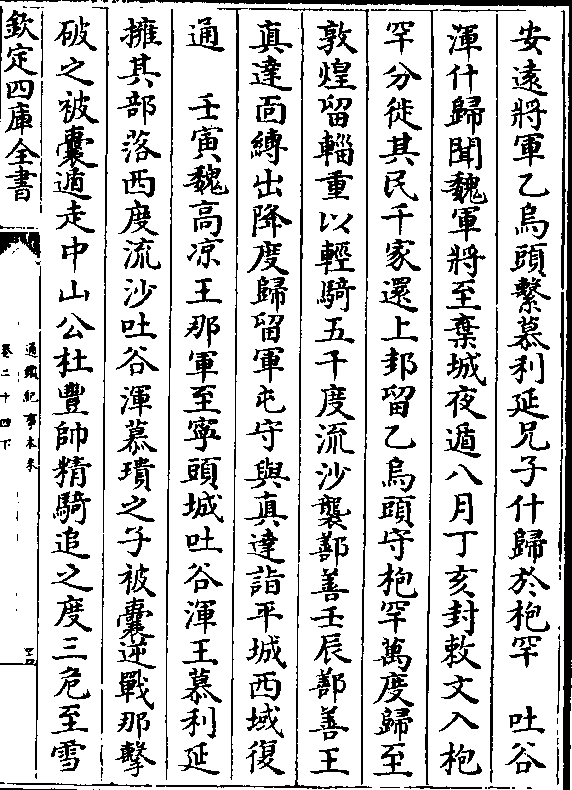 安遠將軍乙烏頭繫慕利延兄子什歸於枹罕　吐谷
渾什歸聞魏軍將至棄城夜遁八月丁亥封敕文入枹
罕分徙其民千家還上邽留乙烏頭守枹罕萬度歸至
敦煌留輜重以輕騎五千度流沙襲鄯善壬辰鄯善王
真達面縛出降度歸留軍屯守與真達詣平城西域復
通　壬寅魏高凉王那軍至寧頭城吐谷渾王慕利延
擁其部落西度流沙吐谷渾慕璝之子被囊逆戰那擊
破之被囊遁走中山公杜豐帥精騎追之度三危至雪
欽定四庫全書
通鑑紀事本末
卷二十四下